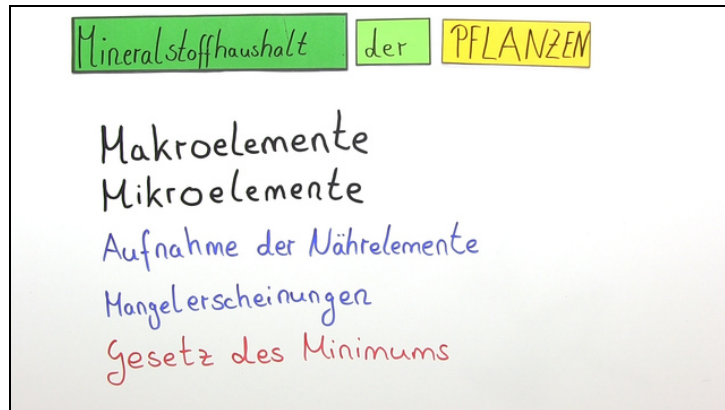 Mineralstoffhaushalt der PFLANZEN
Makroelemente
Mikroelemente
Aufnahme der Nährelemente
Mangelerscheinungen
Gesetz des Minimums